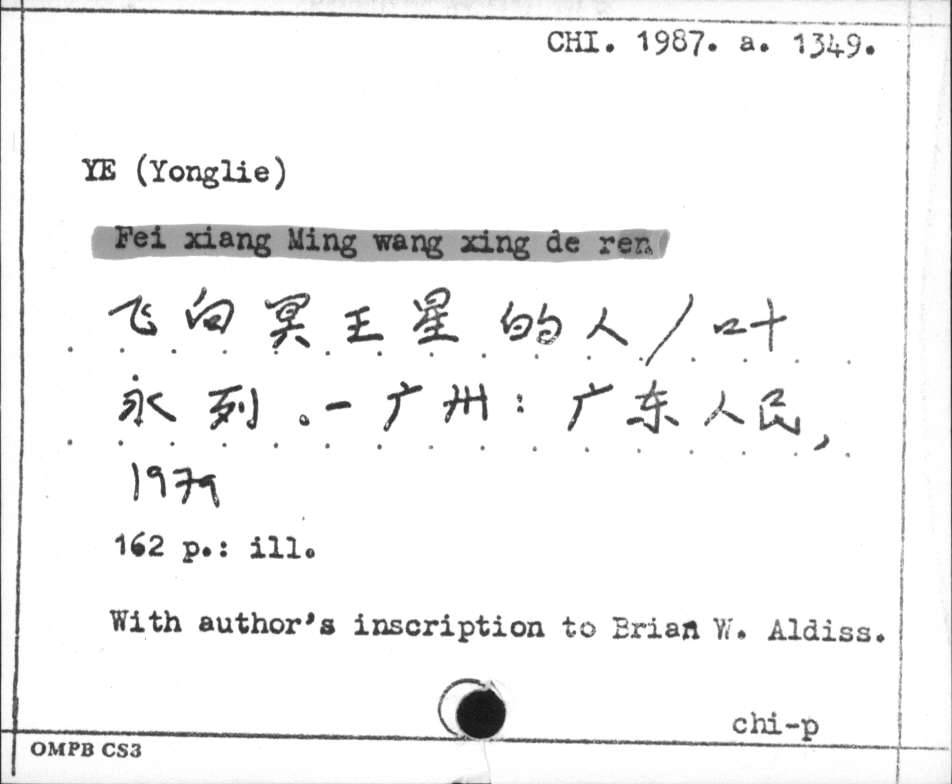 CHI. 1987. a. 1349.
YE (Yonglie)
Fei xiang Ming wang xing de ren
飞向冥王星的人/叶
永列.-广州:广东人民,
1979
162 p.: ill.
With author's inscription to Brian W. Aldiss.
chi-p
OMPB CS3